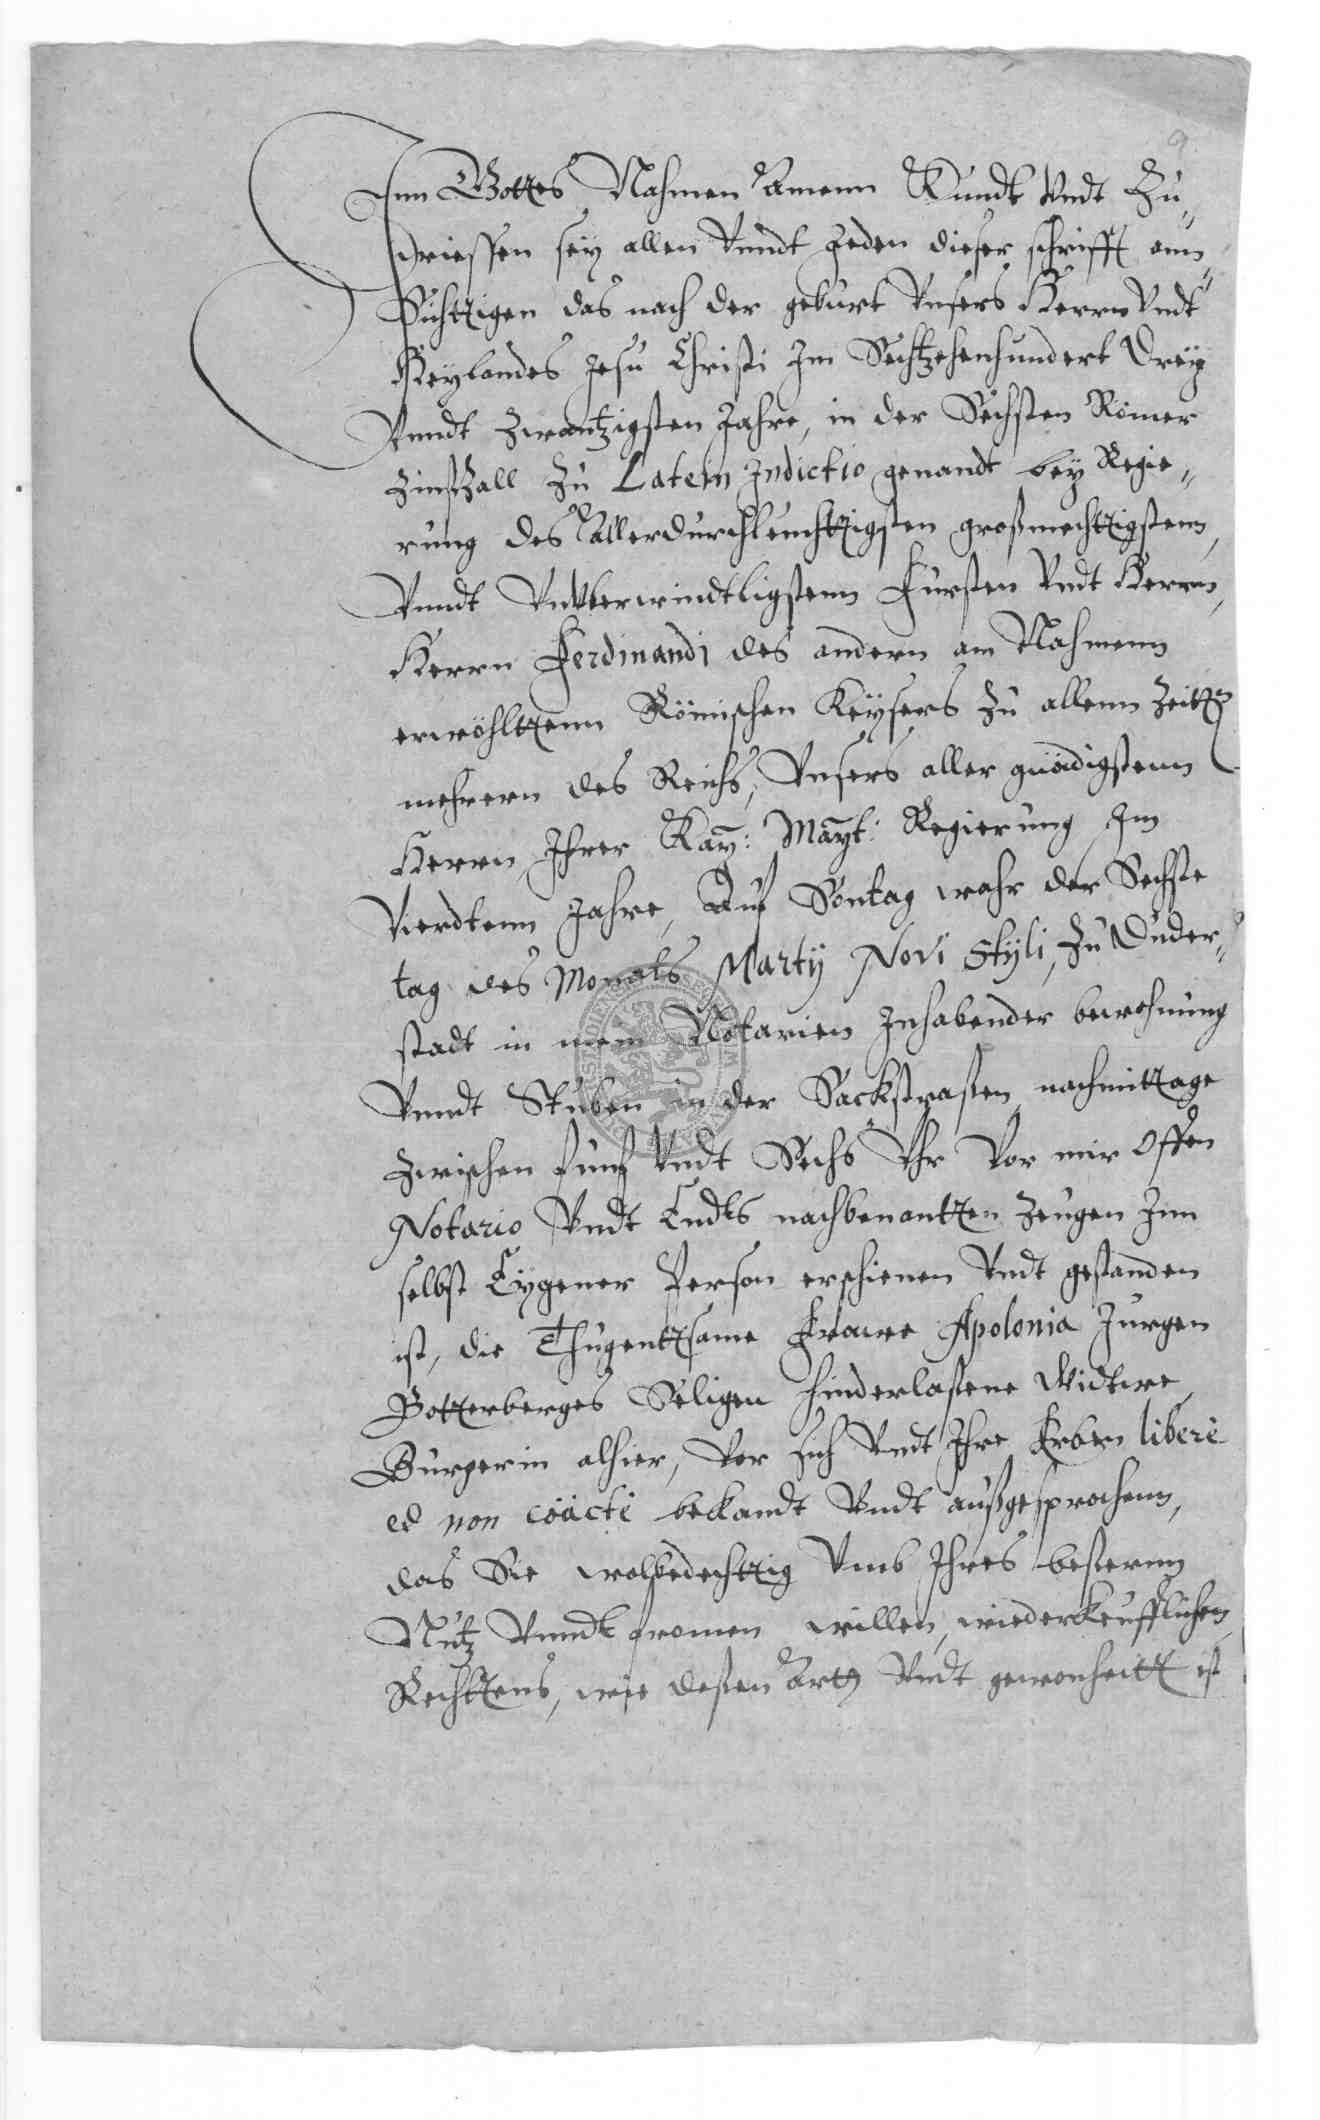 9
Inn Gottes Nahmen Amenn Kundt Vndt Zu„
wiessen seÿ allen Vnndt Jeden dieser schrifft ann„
Sichtigen das nach der geburt Vnsers Herrn Vndt
Heÿlandes Jesu Christi Im Sechtzehenhundert Dreÿ
Vnndt Zwantzigsten Jahre, in der Sechsten Römer
Zinßzall Zu Latein Indictio genandt beÿ Regie„
rung des Allerdurchleuchtigsten großmechtigstenn,
Vnndt Vnüberwindtligstenn Fürsten Vndt Herrn,
Herrn Ferdinandi des andern am Nahmenn
erwöhltenn Römischen Keÿsers Zu allenn Zeiten
mehrern des Reichs, Vnsers aller gnädigstenn
Herrn, Ihrer Kaÿ: Maÿt: Regierung Im
Vierdtenn Jahre, Auf Sontag wahr der Sechste
tag des Monats Martÿ Novi Stÿli, Zu Duder„
stadt in mein Notarien Inhabender bewohnung
Vnndt Stuben in der Sackstraßen, nachmittage
Zwischen fünf Vndt Sechs Vhr Vor mir Offen
Notario Vndt Endts nachbenanten Zeugen Inn
selbst Eÿgener Person erschienen Vndt gestanden
ist, die Thugentsame Frawe Apolonia Jurgen
Botterberges Seligen hinderlaßene Widtwe,
Bürgerin alhier, Vor sich Vndt Ihre Erben liberè
et non coactè bekandt Vndt außgesprochenn,
das Sie wolbedechtig Vmb Ihres beßernn
Nutz Vnndt fromen willen, wiederkeufflichen
Rechtens, wie deßen Art Vndt gewonheit ist